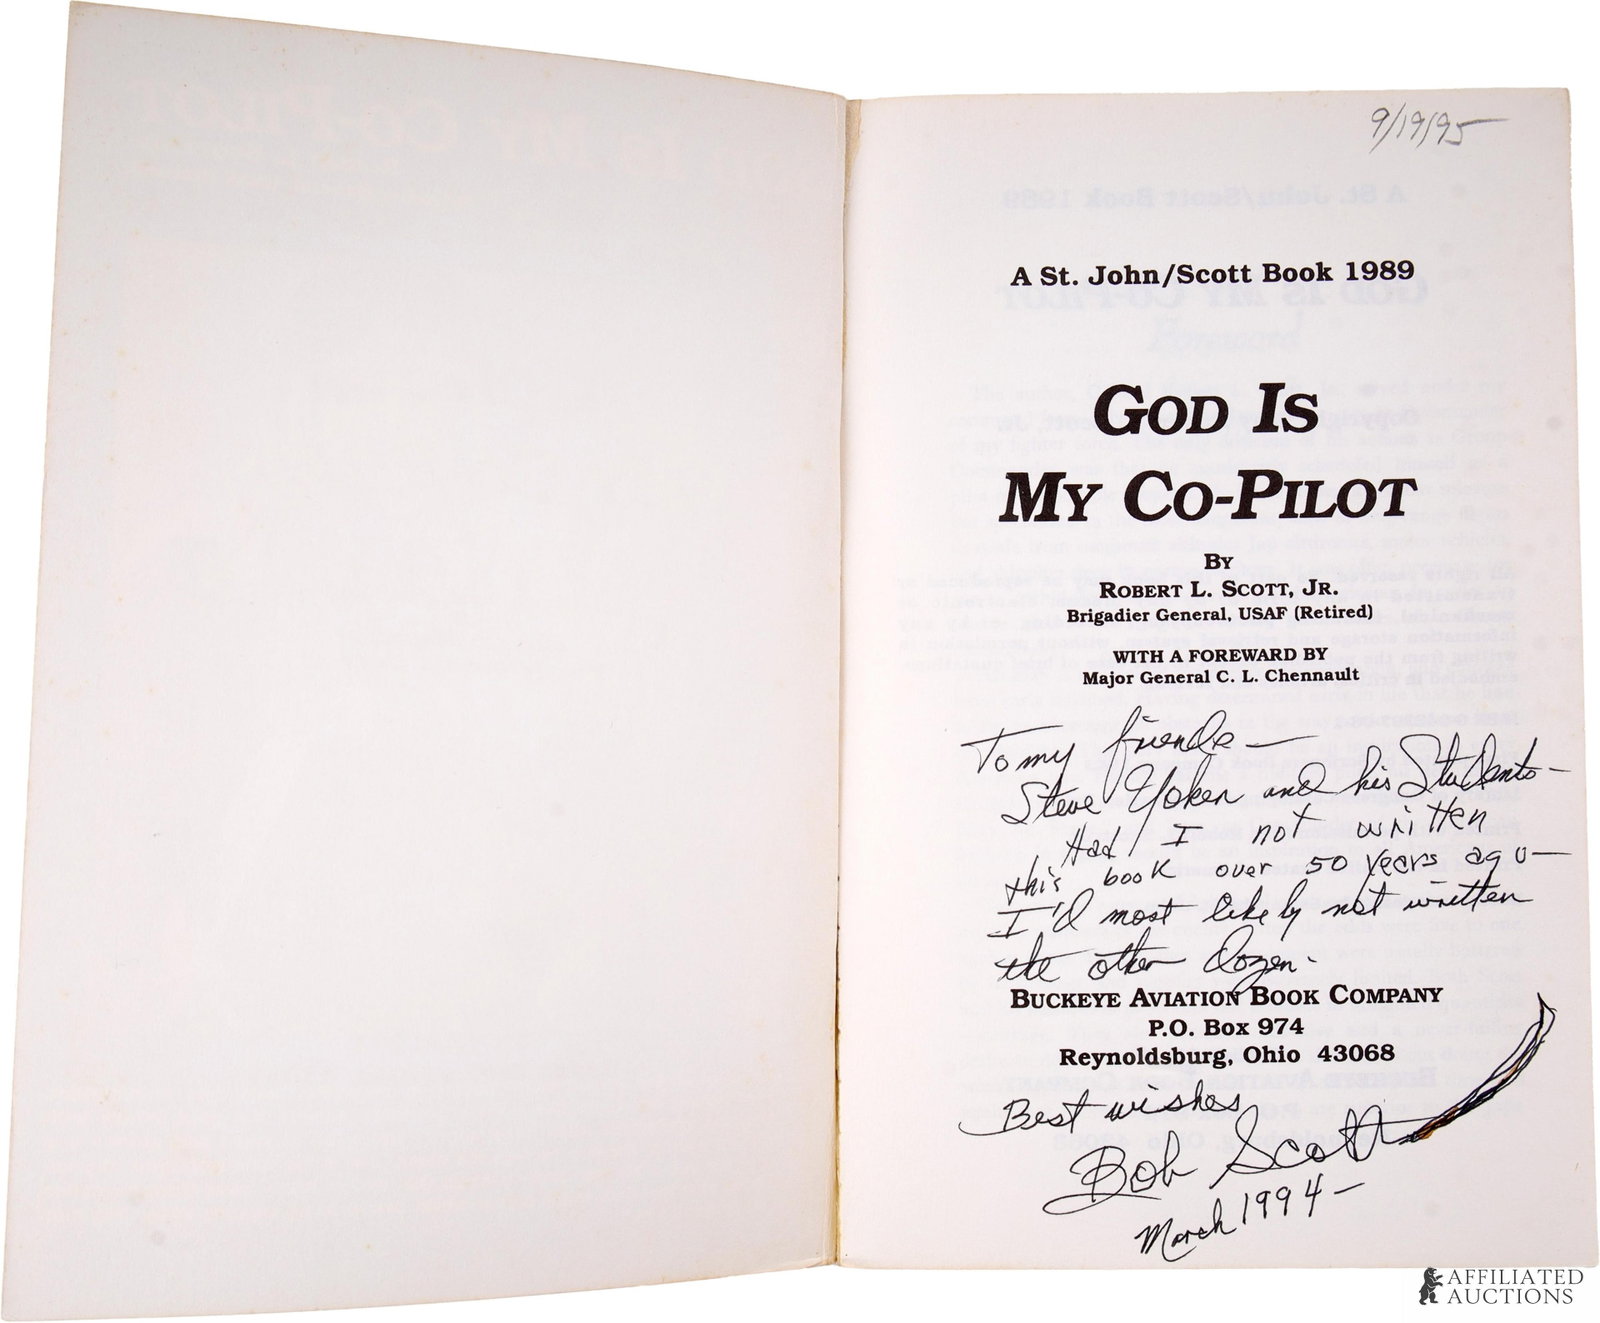 9/19/95
A St. John/Scott Book 1989
GOD IS
MY CO-PILOT
BY
ROBERT L. SCOTT, JR.
Brigadier General, USAF (Retired)
WITH A FOREWARD BY
Major General C. L. Chennault
To my friends —
Steve Yoken and his Students —
Had I not written
this book over 50 years ago —
I'd most likely not written
the other dozen.
BUCKEYE AVIATION BOOK COMPANY
P.O. Box 974
Reynoldsburg, Ohio 43068
Best wishes
Bob Scott
March 1994 —
AFFILIATED
AUCTIONS